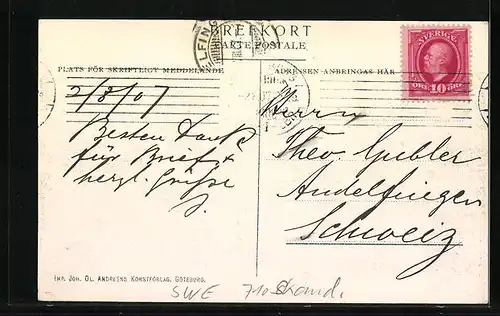 BREFKORT
CARTE POSTALE
PLATS FÖR SKRIFTLIGT MEDDELANDE
ADRESSEN ANBRINGAS HÄR
SVERIGE
ÖRE 10 ÖRE
2/3/07
Besten Dank
für Brief &
herzl. Grüsse
J.
Herrn
Theo. Gubler
Andelfingen
Schweiz
IMP. JOH. OL. ANDREENS KONSTFÖRLAG, GÖTEBORG.
SWE